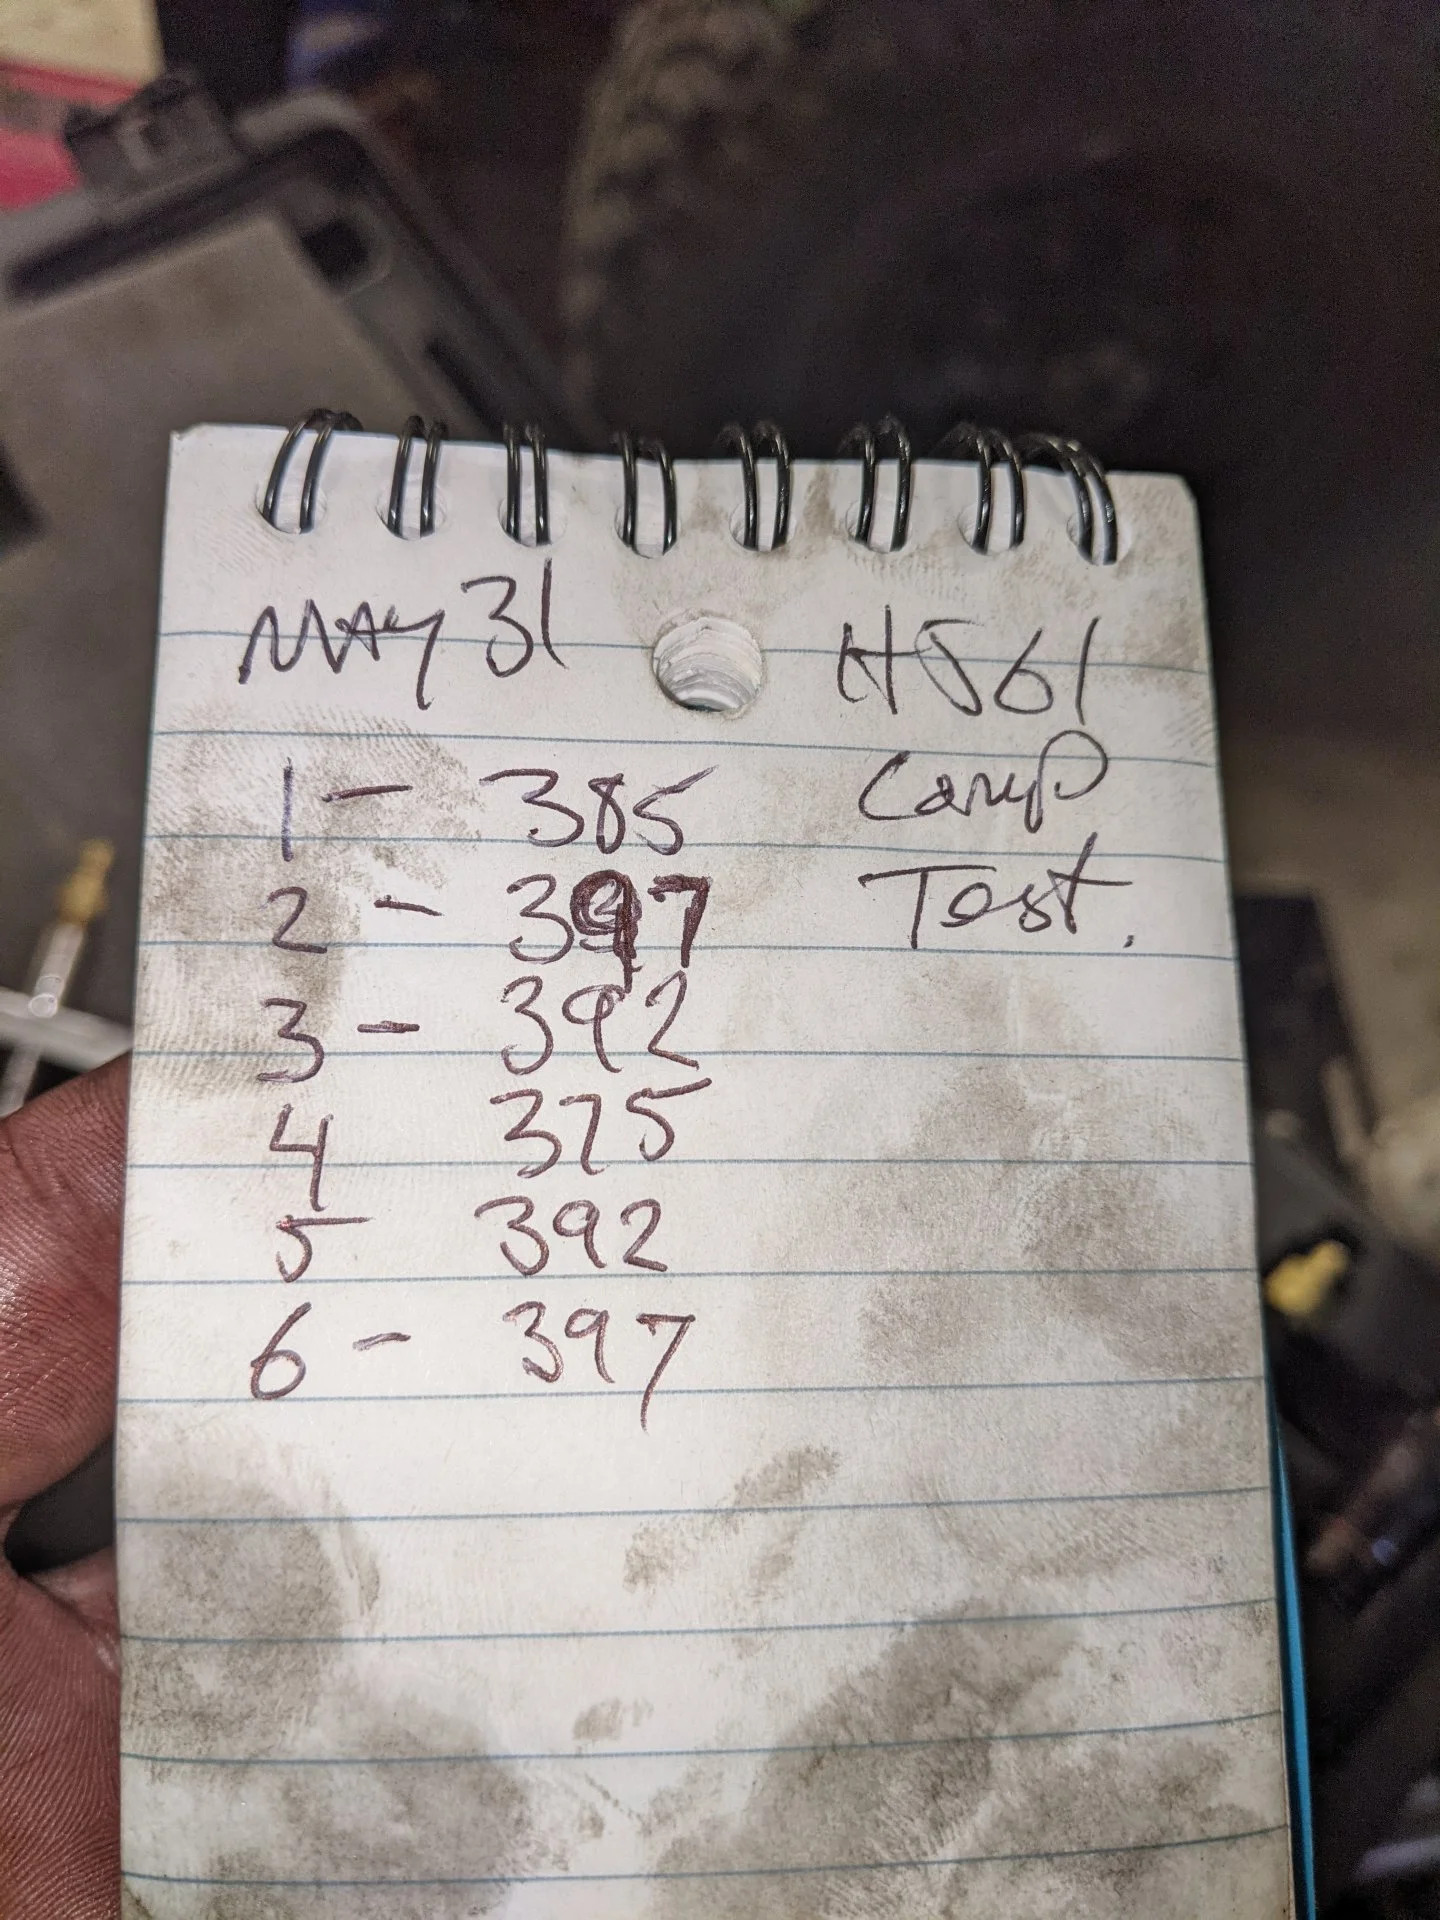 MAY 31 HJ61
Comp
Test.
1 - 385
2 - 397
3 - 392
4 375
5 392
6 - 397